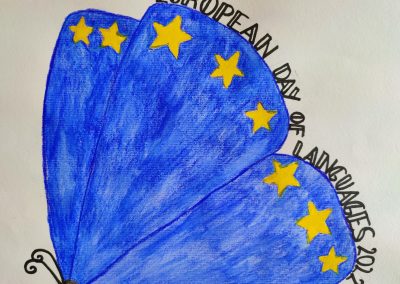 EUROPEAN DAY OF LANGUAGES 2022